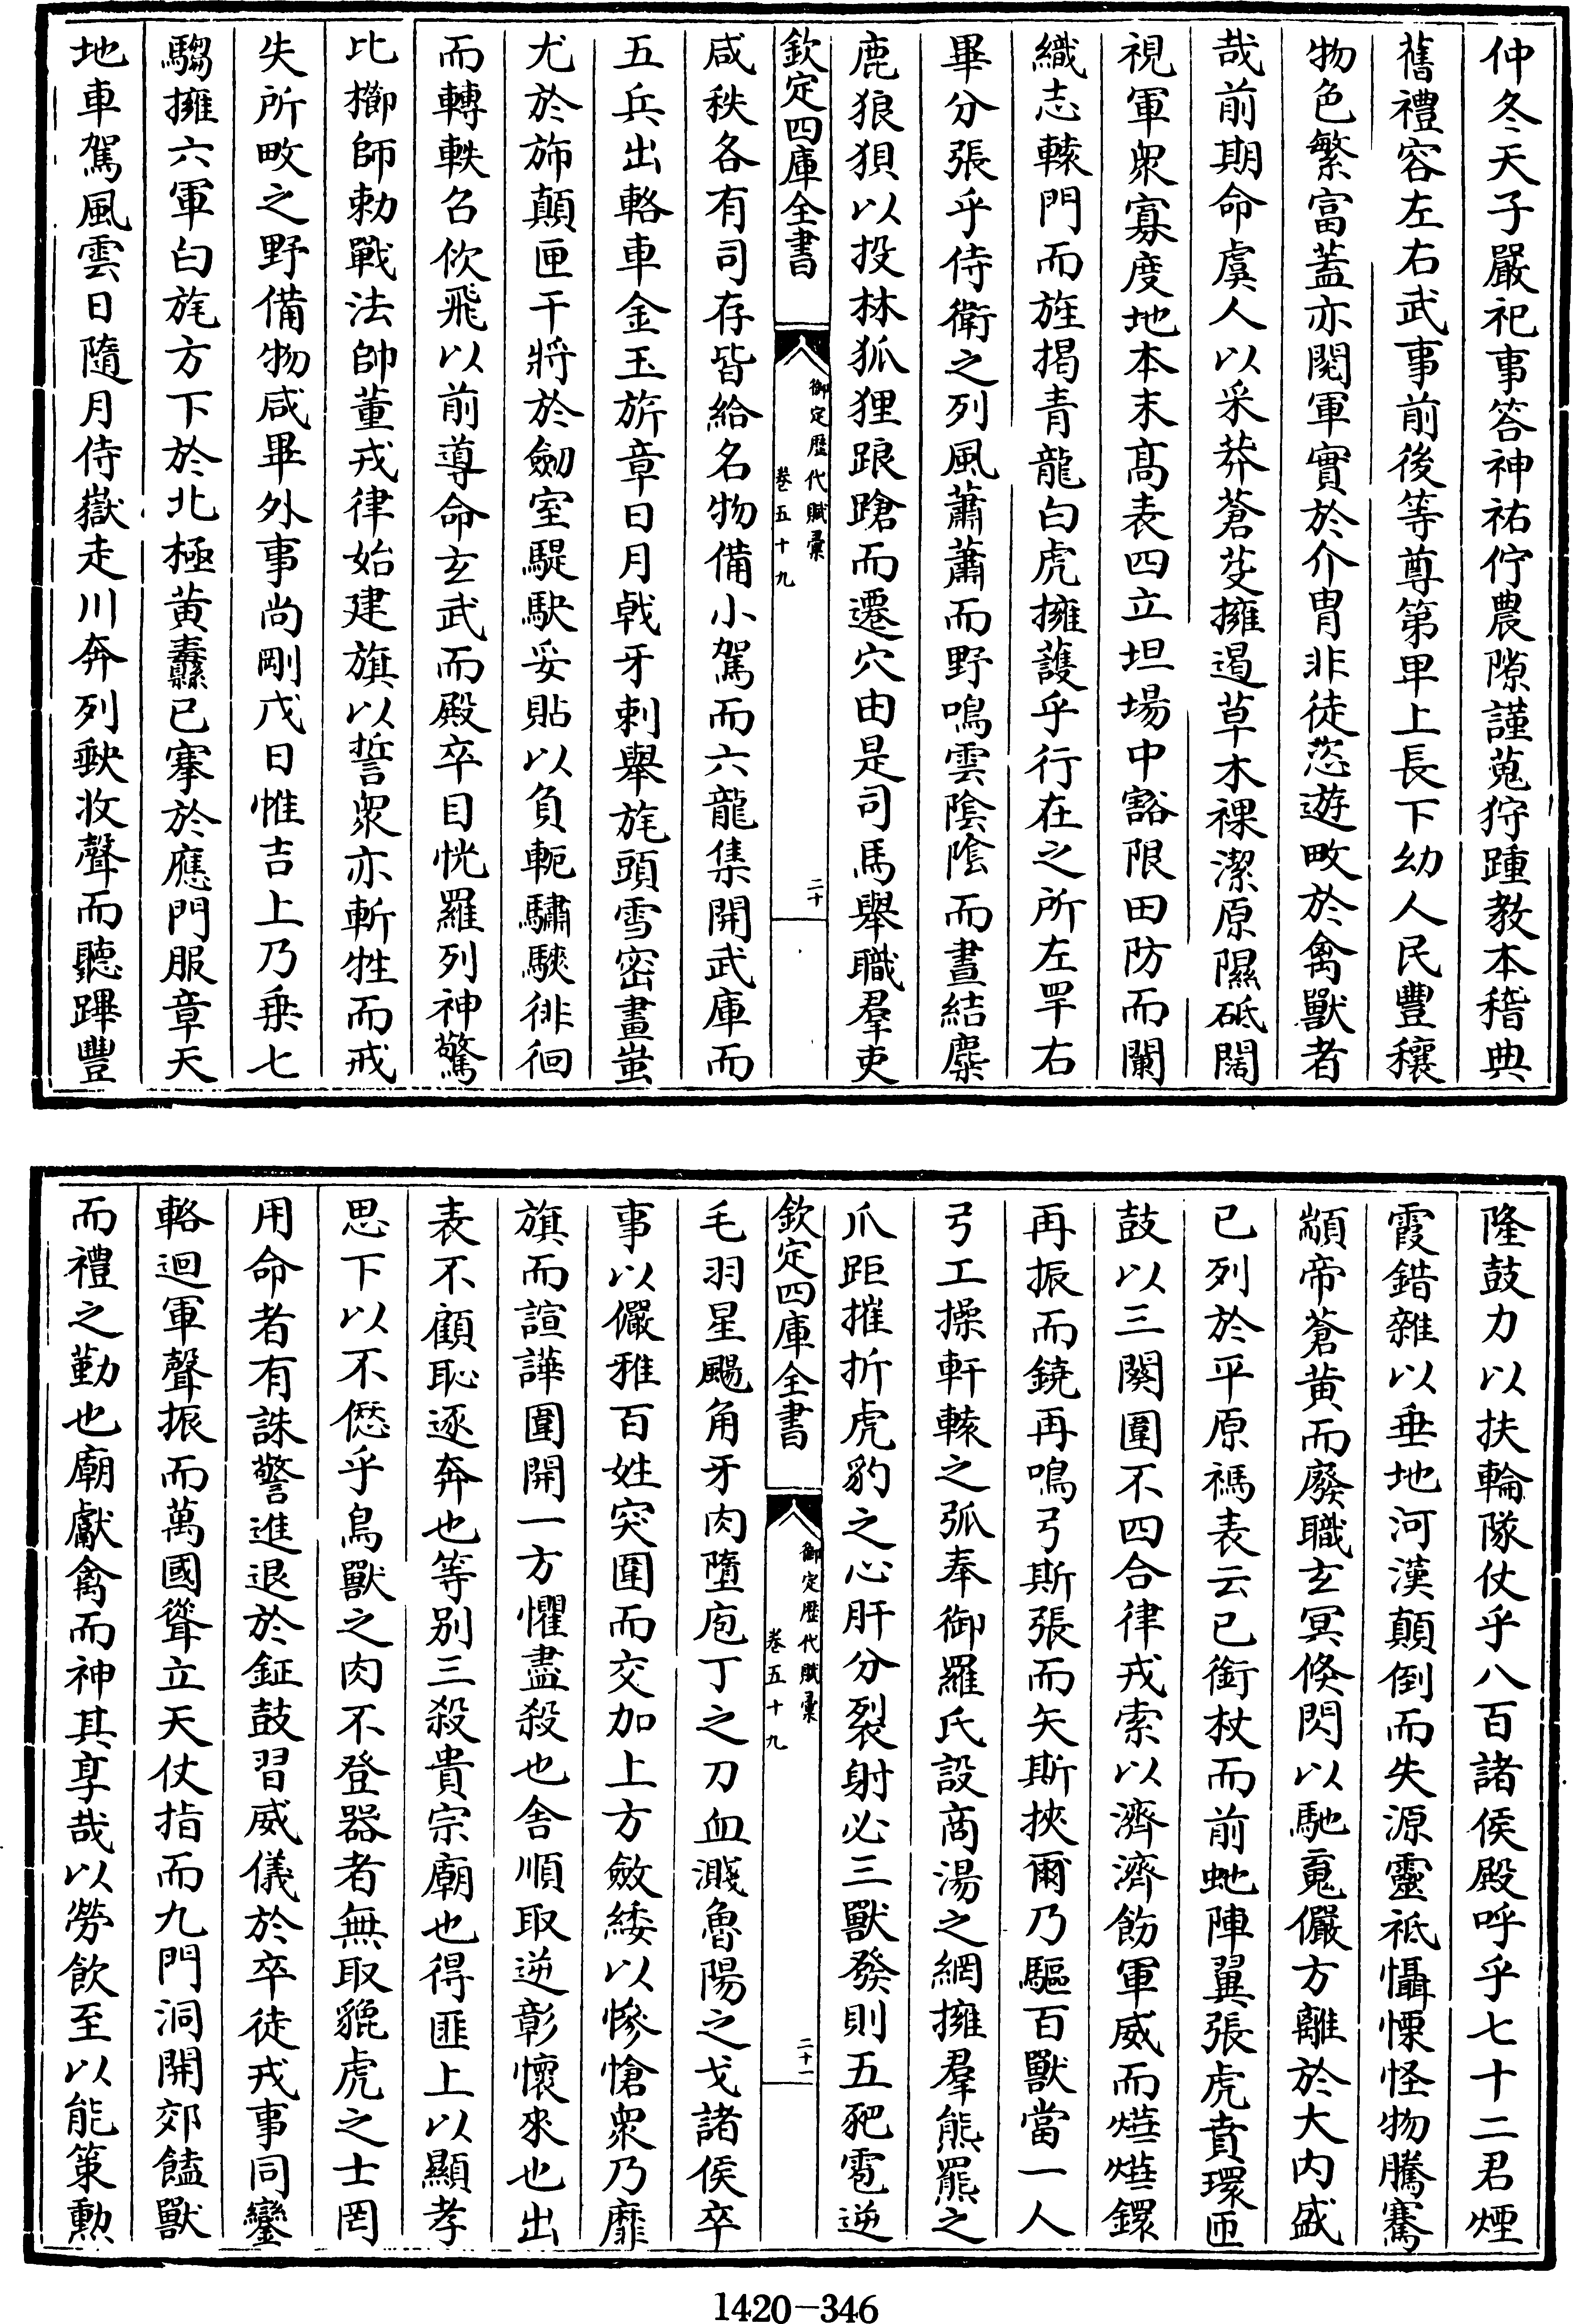 仲冬天子嚴祀事答神祐佇農隙謹蒐狩踵教本稽典
舊禮容左右武事前後等尊第甲上長下幼人民豐穰
物色繁富蓋亦閱軍實於介胄非徒恣遊畋於禽獸者
哉前期命虞人以采莽蒼芟擁遏草木祼潔原隰砥闊
視軍衆寡度地本末髙表四立坦場中豁限田防而闌
織志轅門而旌揭青龍白虎擁護乎行在之所左罕右
畢分張乎侍衛之列風蕭蕭而野鳴雲陰陰而晝結麋
鹿狼狽以投林狐狸踉蹌而遷穴由是司馬舉職羣吏
欽定四庫全書
御定歷代賦彙
卷五十九
二十
咸秩各有司存皆給名物備小駕而六龍集開武庫而
五兵出輅車金玉旂章日月戟牙刺舉旄頭雪密畫蚩
尤於斾顛匣干將於劒室騠駃妥貼以負軛驌騻徘徊
而轉軼召佽飛以前導命玄武而殿卒目恍羅列神驚
比擳師勅戰法帥董戎律始建旗以誓衆亦斬牲而戒
失所畋之野備物咸畢外事尚剛戊日惟吉上乃乗七
騶擁六軍白旄方下於北極黄纛已搴於應門服章天
地車駕風雲日隨月侍嶽走川奔列缺收聲而聽蹕豐
隆鼓力以扶輪隊仗乎八百諸侯殿呼乎七十二君煙
霞錯雜以垂地河漢顛倒而失源靈祇懾慄怪物騰騫
顓帝蒼黄而廢職玄冥倏閃以馳䰟儼方離於大内盛
已列於平原禡表云已銜杖而前虵陣翼張虎賁環匝
鼓以三闋圍不四合律戎索以濟濟飭軍威而燁燁鐶
再振而鐃再鳴弓斯張而矢斯挾爾乃驅百獸當一人
弓工操軒轅之弧奉御羅氏設商湯之網擁羣熊羆之
爪距摧折虎豹之心肝分裂射必三獸發則五豝雹逆
欽定四庫全書
御定歷代賦彙
卷五十九
二十一
毛羽星颺角牙肉墮庖丁之刀血濺魯陽之戈諸侯卒
事以儼雅百姓突圍而交加上方斂綏以慘愴衆乃靡
旗而諠譁圍開一方懼盡殺也舍順取逆彰懷來也出
表不顧恥逐奔也等别三殺貴宗廟也得匪上以顯孝
思下以不愆乎鳥獸之肉不登器者無取貔虎之士罔
用命者有誅警進退於鉦鼓習威儀於卒徒戎事同鑾
輅迴軍聲振而萬國聳立天仗指而九門洞開郊饁獸
而禮之勤也廟獻禽而神其享哉以勞飲至以能策勲
1420-346